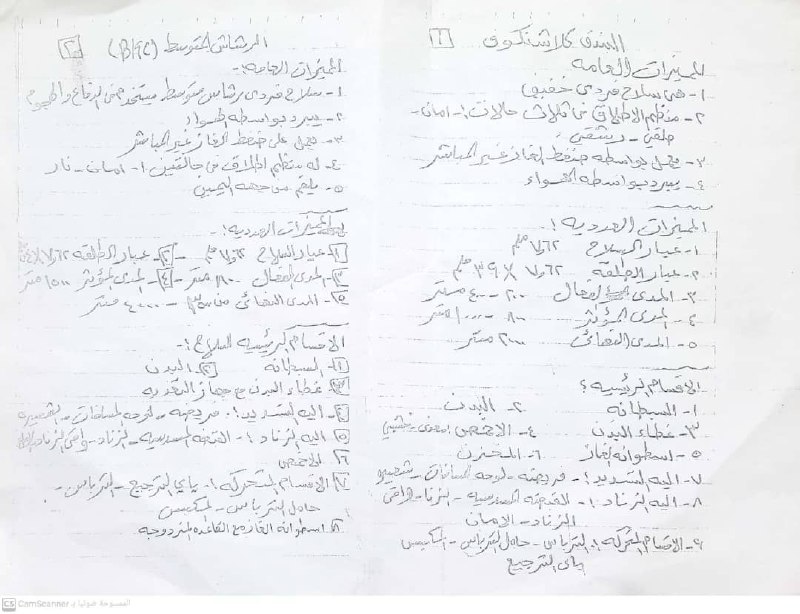 [١] البندقية كلاشنكوف
المميزات العامه
١- هي سلاح فردي خفيف
٢- منظم الاطلاق في ثلاث حالات :- امان -
طلقي - رشقي
٣- يعمل بواسطه ضغط الغاز غير المباشر
٤- يبرد بواسطه الهواء
المميزات العدديه :
١- عيار السلاح ٧،٦٢ ملم
٢- عيار الطلقه ٧،٦٢ X ٣٩ ملم
٣- المدى الفعال ٢٠٠ - ٤٠٠ متر
٤- المدى المؤثر ٨٠٠ - ١٠٠٠ متر
٥- المدى النهائي ٢٠٠٠ متر
الاقسام الرئيسيه :
١- السبطانه ٢- البدن
٣- غطاء البدن ٤- الاخمص خشبي
٥- اسطوانه الغاز ٦- المخزن
٧- اليه التسديد :- فرضه - لوحه المسافات - شعيره
٨- اليه الزناد :- القبضه المسدسيه - الزناد - واقي
الزناد - الامان
٩- الاقسام المتحركه : الترباس - حامل الترباس - المكبس
ياي الترجيع
[٢] الرشاش المتوسط (BKC)
المميزات العامه :-
١- سلاح فردي رشاش متوسط يستخدم في الدفاع والهجوم
٢- يبرد بواسطه الهواء
٣- يعمل على ضغط الغاز غير المباشر
٤- له منظم اطلاق في حالتين :- امان - نار
٥- يلقم من جهه اليمين
المميزات العدديه :-
[١] عيار السلاح ٧،٦٢ ملم - [٢] عيار الطلقه ٧،٦٢ X
[٣] المدى الفعال ٨٠٠ متر - [٤] المدى المؤثر ١٥٠٠ متر
[٥] المدى النهائي من ٣٥٠٠ - ٤٠٠٠ متر
الاقسام الرئيسيه للسلاح :-
[١] السبطانه [٢] البدن
[٣] غطاء البدن مع جهاز التغذيه
[٤] اليه التسديد :- فرضه - لوحه المسافات - الشعيره
[٥] اليه الزناد :- القبضه المسدسيه - الزناد - واقي الزناد
[٦] الاخمص
[٧] الاقسام المتحركه :- ياي الترجيع - الترباس -
حامل الترباس - المكبس
[٨] اسطوانه الغاز مع القاعده المزدوجه
CS CamScanner الممسوحة ضوئيا بـ